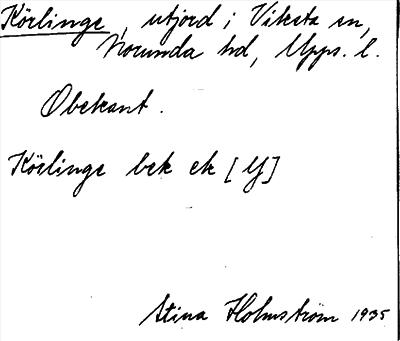 Körlinge, utjord i Viksta sn,
Norunda hd, Upps. l.
Obekant.
Körlinge bek ek [Lf]
Stina Holmström 1935